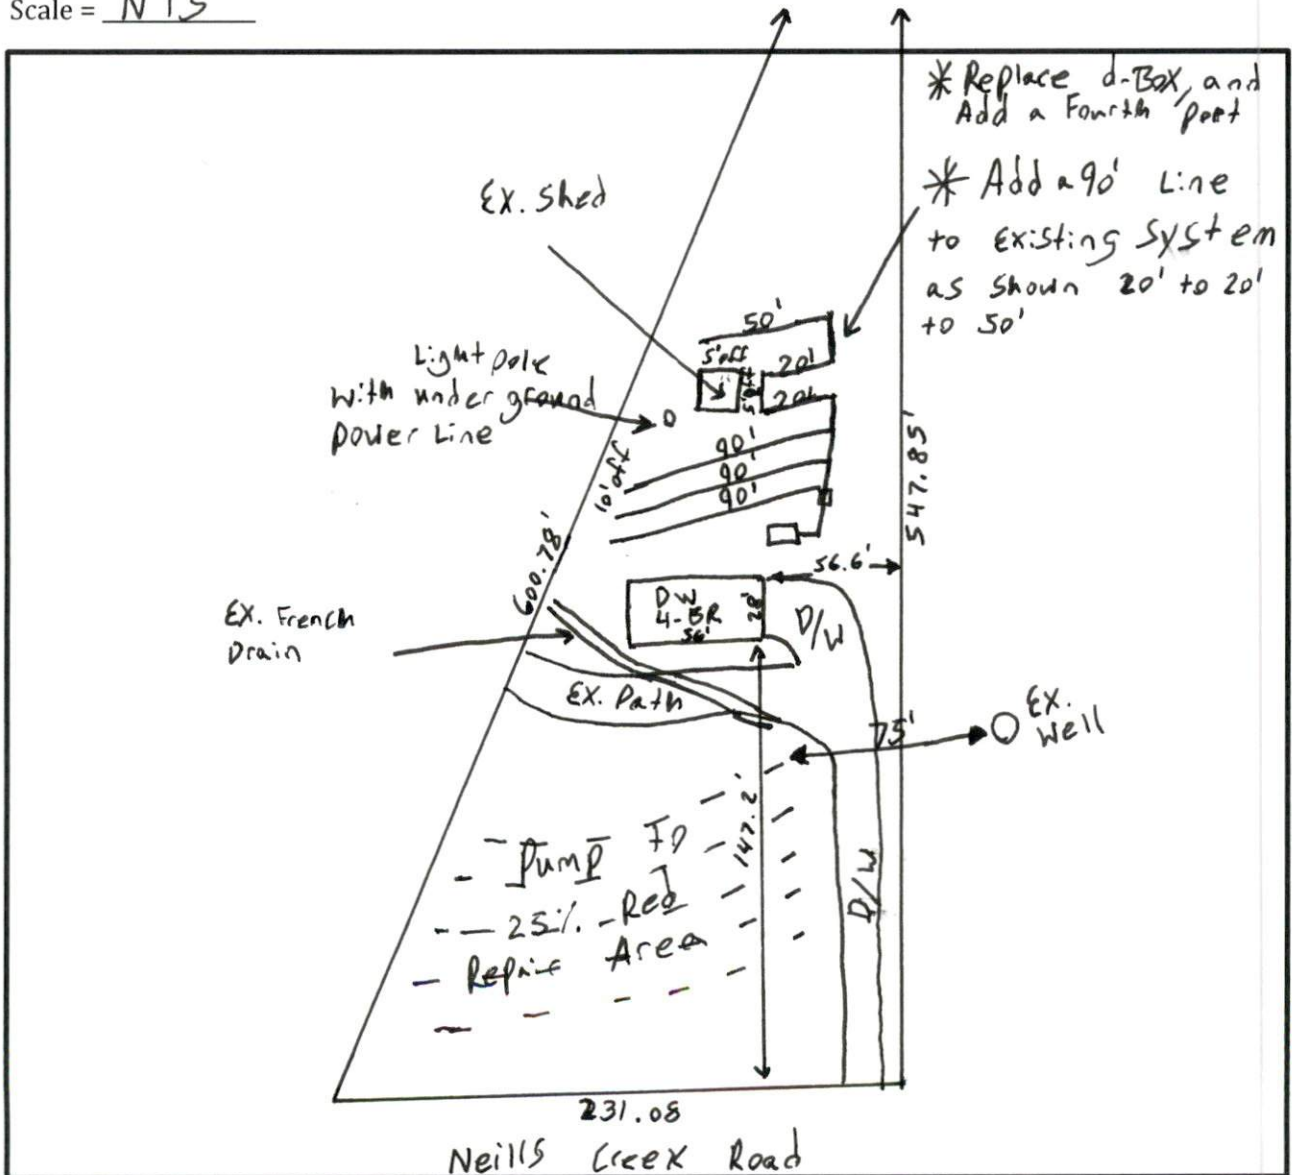 Scale = NTS
* Replace d-Box, and
Add a Fourth Port
* Add a 90' Line
to Existing System
as Shown 20' to 20'
to 50'
EX. Shed
50'
5' off
20'
5' off
20'
Light pole
with under ground
power Line
90'
90'
90'
10' off
547.85'
600.78'
56.6'
DW
4-BR
56'
28'
D/W
EX. French
Drain
EX. Path
EX.
Well
75'
147.2'
Pump To
25% Red
Repair Area
D/W
231.08
Neills Creek Road